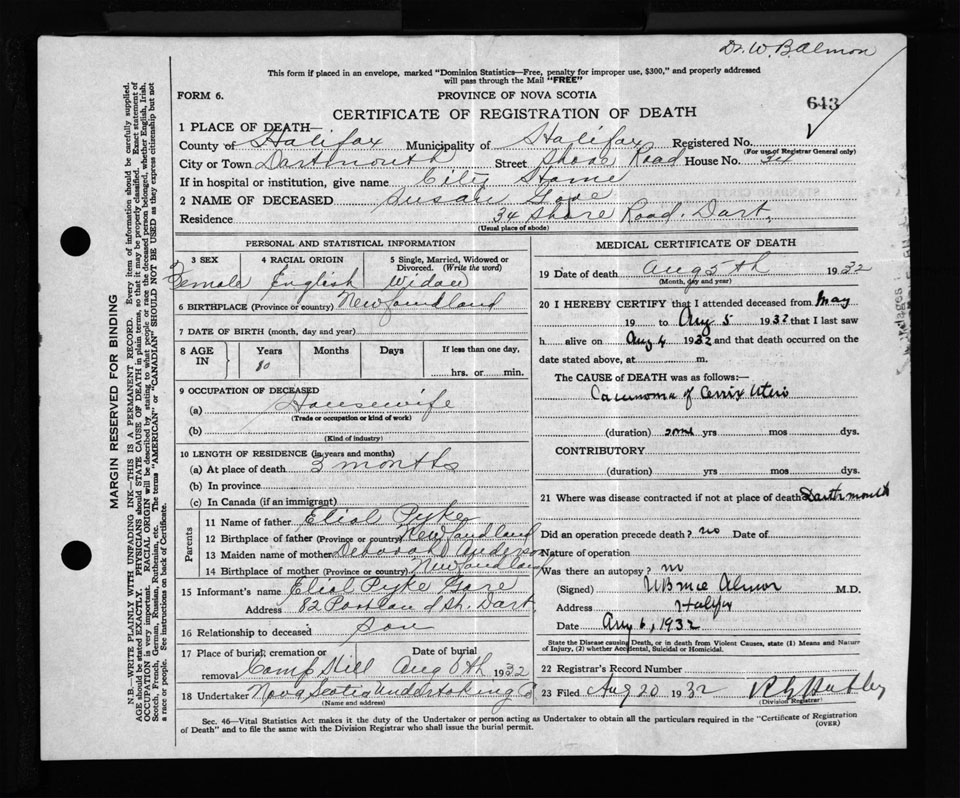 Dr. W. B. Almon
This form if placed in an envelope, marked "Dominion Statistics—Free, penalty for improper use, $300," and properly addressed
will pass through the Mail "FREE"
FORM 6.
PROVINCE OF NOVA SCOTIA
643
CERTIFICATE OF REGISTRATION OF DEATH
1 PLACE OF DEATH—
County of Halifax Municipality of Halifax Registered No.
(For use of Registrar General only)
City or Town Dartmouth Street Shore Road House No. 34
If in hospital or institution, give name City Home
2 NAME OF DECEASED Susan Gore
Residence 34 Shore Road. Dart.
(Usual place of abode)
PERSONAL AND STATISTICAL INFORMATION
3 SEX 4 RACIAL ORIGIN 5 Single, Married, Widowed or
Divorced. (Write the word)
Female English Widow
6 BIRTHPLACE (Province or Country) Newfoundland
7 DATE OF BIRTH (month, day and year)
8 AGE IN Years Months Days If less than one day,
80
hrs. or min.
9 OCCUPATION OF DECEASED
(a) Housewife
(Trade or occupation or kind of work)
(b)
(Kind of industry)
10 LENGTH OF RESIDENCE (in years and months)
(a) At place of death 3 months
(b) In province
(c) In Canada (if an immigrant)
Parents
11 Name of father Eliol Pyke
12 Birthplace of father (Province or country) Newfoundland
13 Maiden name of mother Deborah Anderson
14 Birthplace of mother (Province or country) Newfoundland
15 Informant's name Eliol Pyke Gore
Address 82 Portland St. Dart.
16 Relationship to deceased Son
17 Place of burial, cremation or Date of burial
removal Camp Hill Aug 8th 1932
18 Undertaker Nova Scotia Undertaking Co
(Name and address)
MEDICAL CERTIFICATE OF DEATH
19 Date of death Aug 5th 1932
(Month, day and year)
20 I HEREBY CERTIFY that I attended deceased from May
19 to Aug 5 1932 that I last saw
h alive on Aug 4 1932 and that death occurred on the
date stated above, at m.
The CAUSE of DEATH was as follows:—
Carcinoma of Cervix Uteri
(duration) some yrs mos dys.
CONTRIBUTORY
(duration) yrs mos dys.
21 Where was disease contracted if not at place of death Dartmouth
Did an operation precede death? no Date of
Nature of operation
Was there an autopsy? no
(Signed) W Bruce Almon M.D.
Address Halifax
Date Aug 6, 1932
State the Disease causing Death, or in death from Violent Causes, state (1) Means and Nature
of Injury, (2) whether Accidental, Suicidal or Homicidal.
22 Registrar's Record Number
23 Filed Aug 20 1932
(Division Registrar)
Sec. 46—Vital Statistics Act makes it the duty of the Undertaker or person acting as Undertaker to obtain all the particulars required in the "Certificate of Registration
of Death" and to file the same with the Division Registrar who shall issue the burial permit.
(OVER)
MARGIN RESERVED FOR BINDING
N.B.—WRITE PLAINLY WITH UNFADING INK—THIS IS A PERMANENT RECORD. Every item of information should be carefully supplied.
AGE should be stated EXACTLY. PHYSICIANS should STATE CAUSE OF DEATH in plain terms, so that it may be properly classified. Exact statement of
OCCUPATION is very important. RACIAL ORIGIN will be described by stating to what people or race the deceased person belonged, whether English, Irish,
Scotch, French, German, Russian, Ruthenian, etc. The terms "AMERICAN" or "CANADIAN" SHOULD NOT BE USED as they express citizenship but not
a race or people. See instructions on back of Certificate.